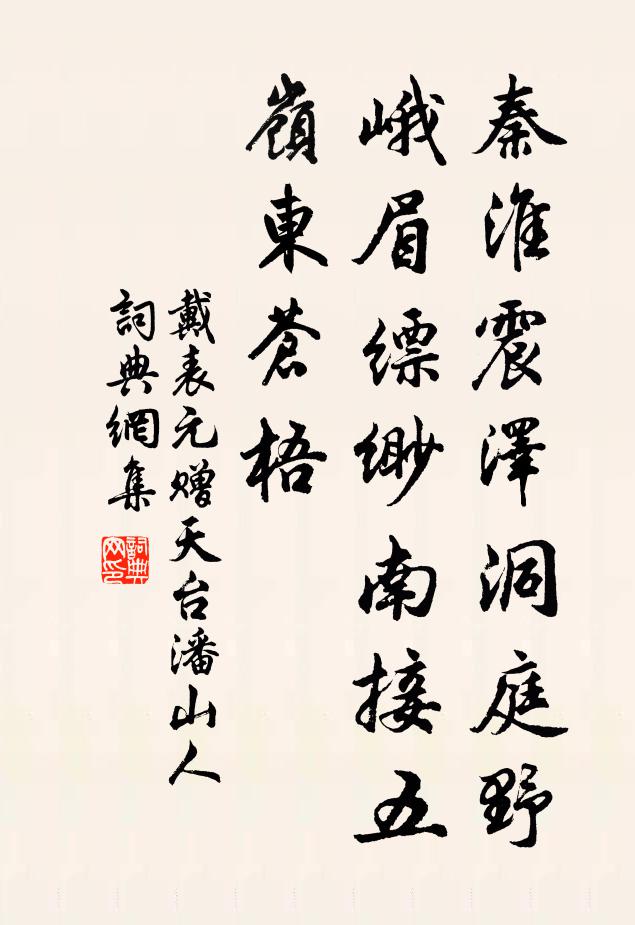 秦淮震澤洞庭野
峨眉縹緲南接五
嶺東蒼梧
戴表元赠天台潘山人
詞典網集
詞典网印